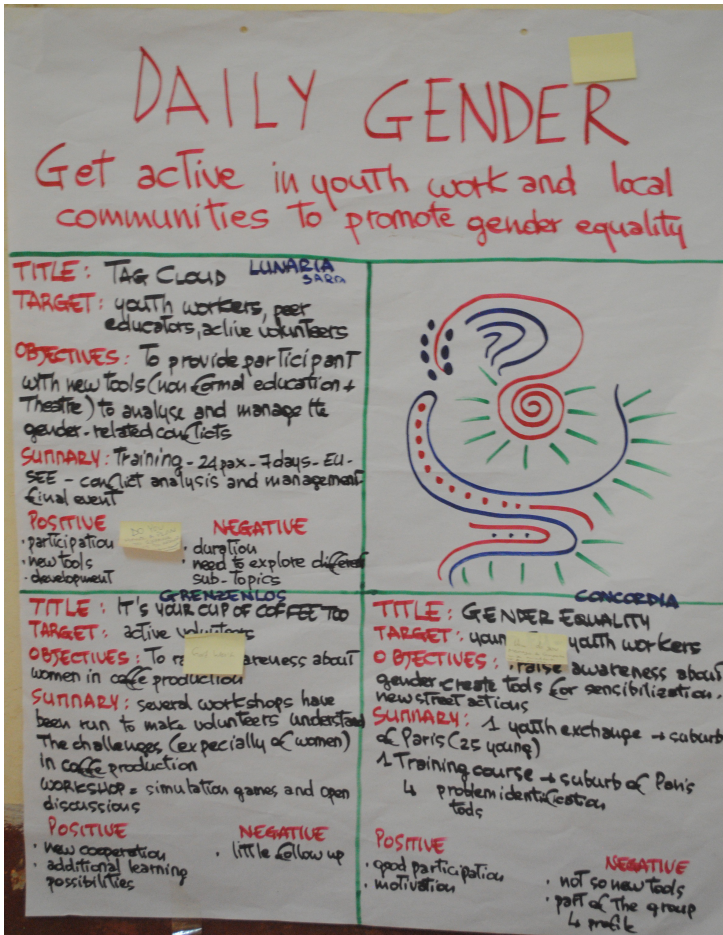 DAILY GENDER
Get active in youth work and local
communities to promote gender equality
TITLE: TAG CLOUD LUNARIA
SARA
TARGET: youth workers, peer
educators, active volunteers
OBJECTIVES: To provide participant
with new tools (non formal education +
Theatre) to analyse and manage the
gender-related conflicts
SUMMARY: Training - 24 pax - 7 days - EU -
SEE - conflict analysis and management
final event
POSITIVE
· participation
· new tools
· development
NEGATIVE
· duration
· need to explore different
sub-topics
GRENZENLOS
TITLE: IT'S YOUR CUP OF COFFEE TOO
TARGET: active volunteers
OBJECTIVES: To areness about
women in coffe production
SUMMARY: several workshops have
been run to make volunteers understand
The challenges (expecially of women)
in coffe production
WORKSHOP = simulation games and open
discussions
POSITIVE
· new cooperation
· additional learning
possibilities
NEGATIVE
· little follow up
CONCORDIA
TITLE: GENDER EQUALITY
TARGET: youn youth workers
OBJECTIVES: raise awareness about
gender. create tools for sensibilization.
new street actions
SUMMARY: 1 youth exchange → suburb
of Paris (25 young)
1 Training course → suburb of Paris
↳ problem identification
tools
POSITIVE
· good participation
· motivation
NEGATIVE
· not so new tools
· part of The group
↳ profile